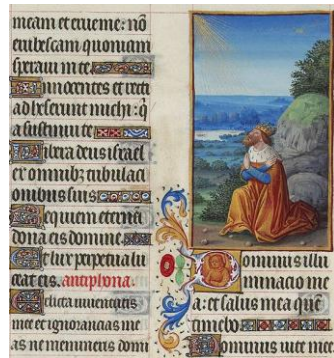 meam et erue me: nõ
erubescam quoniam
speraui in te
Innocentes et recti
adheserunt michi: q̃
a sustinui te
Libera deus israel
ex omnibz tribulaci
onibus suis
Requiem eterna
dona eis domine
Et lux perpetua lu
ceat eis. antiphona.
Delicta iuuentutis
mee et ignorancias me
as ne memineris domi
Dominus illu
minacio me
a: et salus mea que
timebo
Dominus vite mee